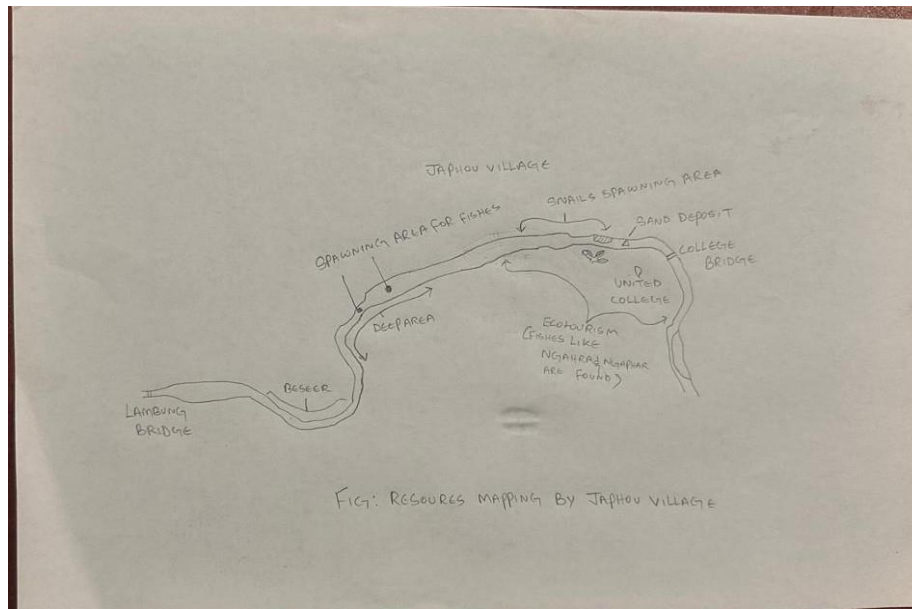 JAPHOU VILLAGE
SNAILS SPAWNING AREA
SPAWNING AREA FOR FISHES
SAND DEPOSIT
COLLEGE
BRIDGE
UNITED
COLLEGE
DEEP AREA
ECOTOURISM
(FISHES LIKE
NGAHRA & NGAPHAR
ARE FOUND)
BESEER
LAMBUNG
BRIDGE
FIG: RESOURES MAPPING BY JAPHOU VILLAGE